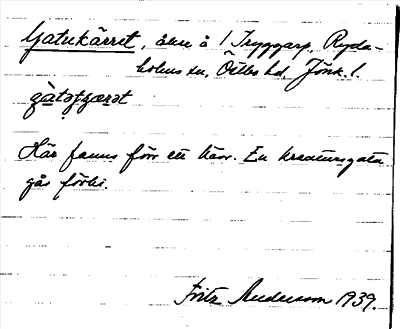 Gatukärret, åker å 1 Tryggarp, Ryda-
holms sn. Östbo hd. Jönk. l.
gàtəʃærət
Här fanns förr ett kärr. En kreatursgata
gås förbi.
Fritz Andersson 1939.